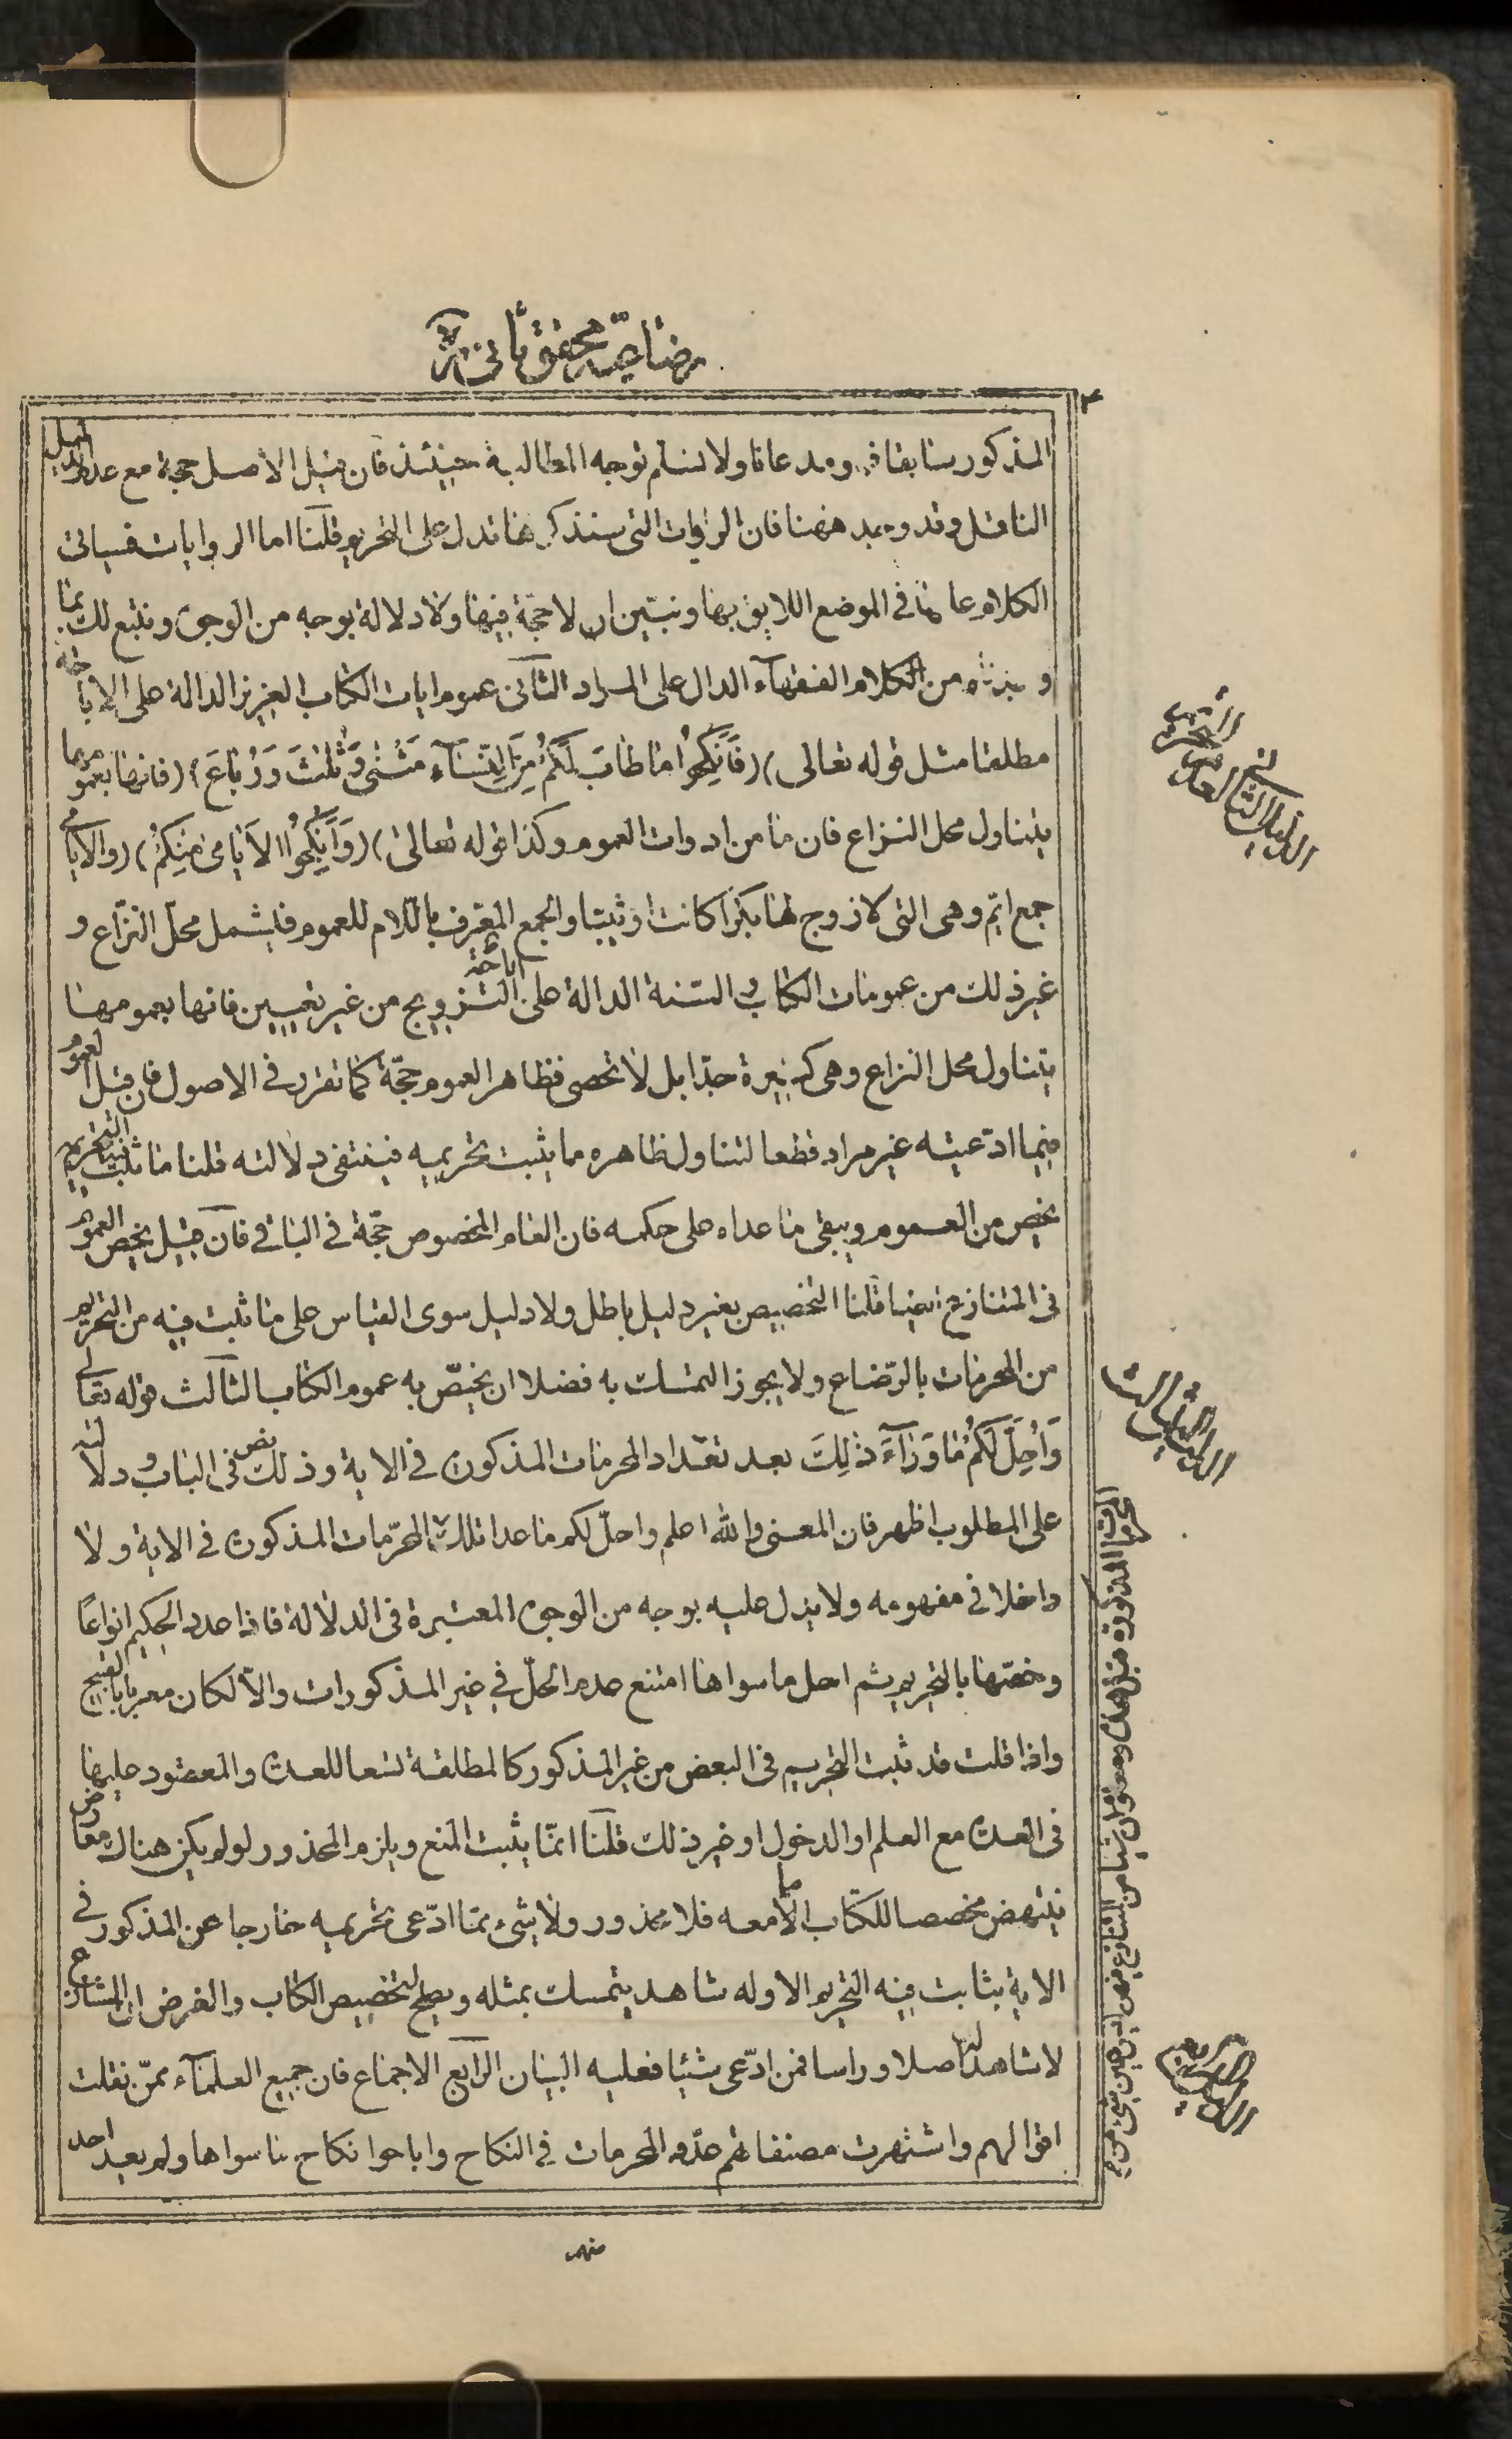 رضاعيه محقق ثانى ره
٣
المذكور سابقا ومدعانا ولا نسلم توجه المطالبة حينئذ فان قيل الاصل حجة مع عدم الدليل
الناقل وقد وجد ههنا فان الروايات التى سنذكرها تدل على التحريم قلنا اما الروايات فسياتى
الكلام عليها فى الموضع اللايق بها ونبيّن ان لا حجّة فيها ولا دلالة بوجه من الوجوه ونتبع ذلك بما
من الكلام الفقهآء الدال على المراد الثآنى عموم ايات الكتاب العزيز الدالة على الاباحة
مطلقا مثل قوله تعالى) (فَانْكِحُوا مَا طَابَ لَكُمْ مِنَ النِّسَآءِ مَثْنَى وَثُلٰثَ وَرُبَاعَ) (فانها بعمومها
يتناول محل النزاع فان ما من ادوات العموم وكذا قوله تعالى) (وَأَنْكِحُوا الاَيَامىٰ مِنْكُمْ) (والايامى
جمع ايّم وهى التى لا زوج لها بكرًا كانت او ثيّبا والجمع المعّرف باللام للعموم فليشمل محلّ النزّاع و
غير ذلك من عمومات الكتاب والسّنة الدالة على اباحة التزويج من غير تعيين فانها بعمومها
يتناول محل النزاع وهى كثيرة جدّا بل لا تحصى فظاهر العموم حجّة كما تقرر فى الاصول فان قيل العموم
فيما ادّعيته غير مراد قطعا لتناول ظاهره ما يثبت تحريمه فينتفى دلالته قلنا ما ثبت فيه التحريم
يخص من العموم ويبقى ما عداه على حكمه فان العام المخصوص حجّة فى الباقى فآن قيل يخص العموم
فى المتنازع ايضا قلنا التخصيص بغير دليل باطل ولا دليل سوى القياس على ما ثبت فيه من التحريم
من المحرمات بالرّضاع ولا يجوز التمسك به فضلا ان يخصّ به عموم الكتاب الثآلث قوله تعالى
وَأُحِلَّ لَكُمْ مَا وَرَآءَ ذٰلِكَ بعد تعّداد المحرمات المذكورة فى الاية وذلك نص فى الباب ودلالته
على المطلوب اظهر فان المعنى والله اعلم واحلّ لكم ما عدا تلك المحرّمات المذكورة فى الاية ولا
داخلا فى مفهومه ولا يدل عليه بوجه من الوجوه المعتبرة فى الدلالة فاذا عدد الحكيم انواعًا
وخصّها بالتحريم ثم احل ما سواها امتنع عدم الحلّ فى غير المذكورات والاّ لكان مغريا بالقبيح
واذا قلت قد ثبت التحريم فى البعض من غير المذكور كالمطلقة تسعا للعدة والمعقود عليها
فى العدة مع العلم او الدخول او غير ذلك قلنآ انمّا يثبت المنع ويلزم المحذور لو لم يكن هناك معارض
ينتهض مخصصا للكتاب امّا معه فلا محذور ولا شىء ممّا ادّعى تحريمه خارجا عن المذكور فى
الاية بثابت فيه التحريم الا وله شاهد يتمسك بمثله ويصلح لتخصيص الكتاب والفرض ان المتنازع
لا شاهد لها اصلا وراسا فمن ادّعى شئيا فعليه البيان الرآبع الاجماع فان جميع العلمآء ممّن نقلت
اقوالهم واشتهرت مصنفاتهم عدّوا المحرمات فى النكاح واباحوا نكاح ما سواها ولم يعد احد
منهم
الدليل الثانى
الدليل الثالث
المحرمات المذكورة
الدليل الرابع